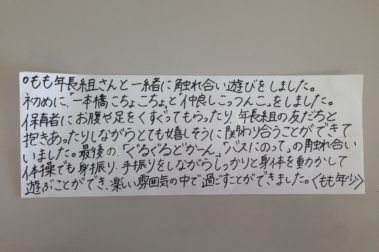 ○もも年長組さんと一緒に触れ合い遊びをしました。
初めに、"一本橋こちょこちょ"と"仲良しこっつんこ"をしました。
保育者にお腹や足をくすぐってもらったり、年長組の友だちと
抱きあったりしながらとても嬉しそうに関わり合うことができて
いました。最後の、「ぐるぐるどかーん」、「バスにのって」の触れ合い
体操でも身振り、手振りをしながらしっかりと身体を動かして
遊ぶことができ、楽しい雰囲気の中で過ごすことができました。〈もも年少〉